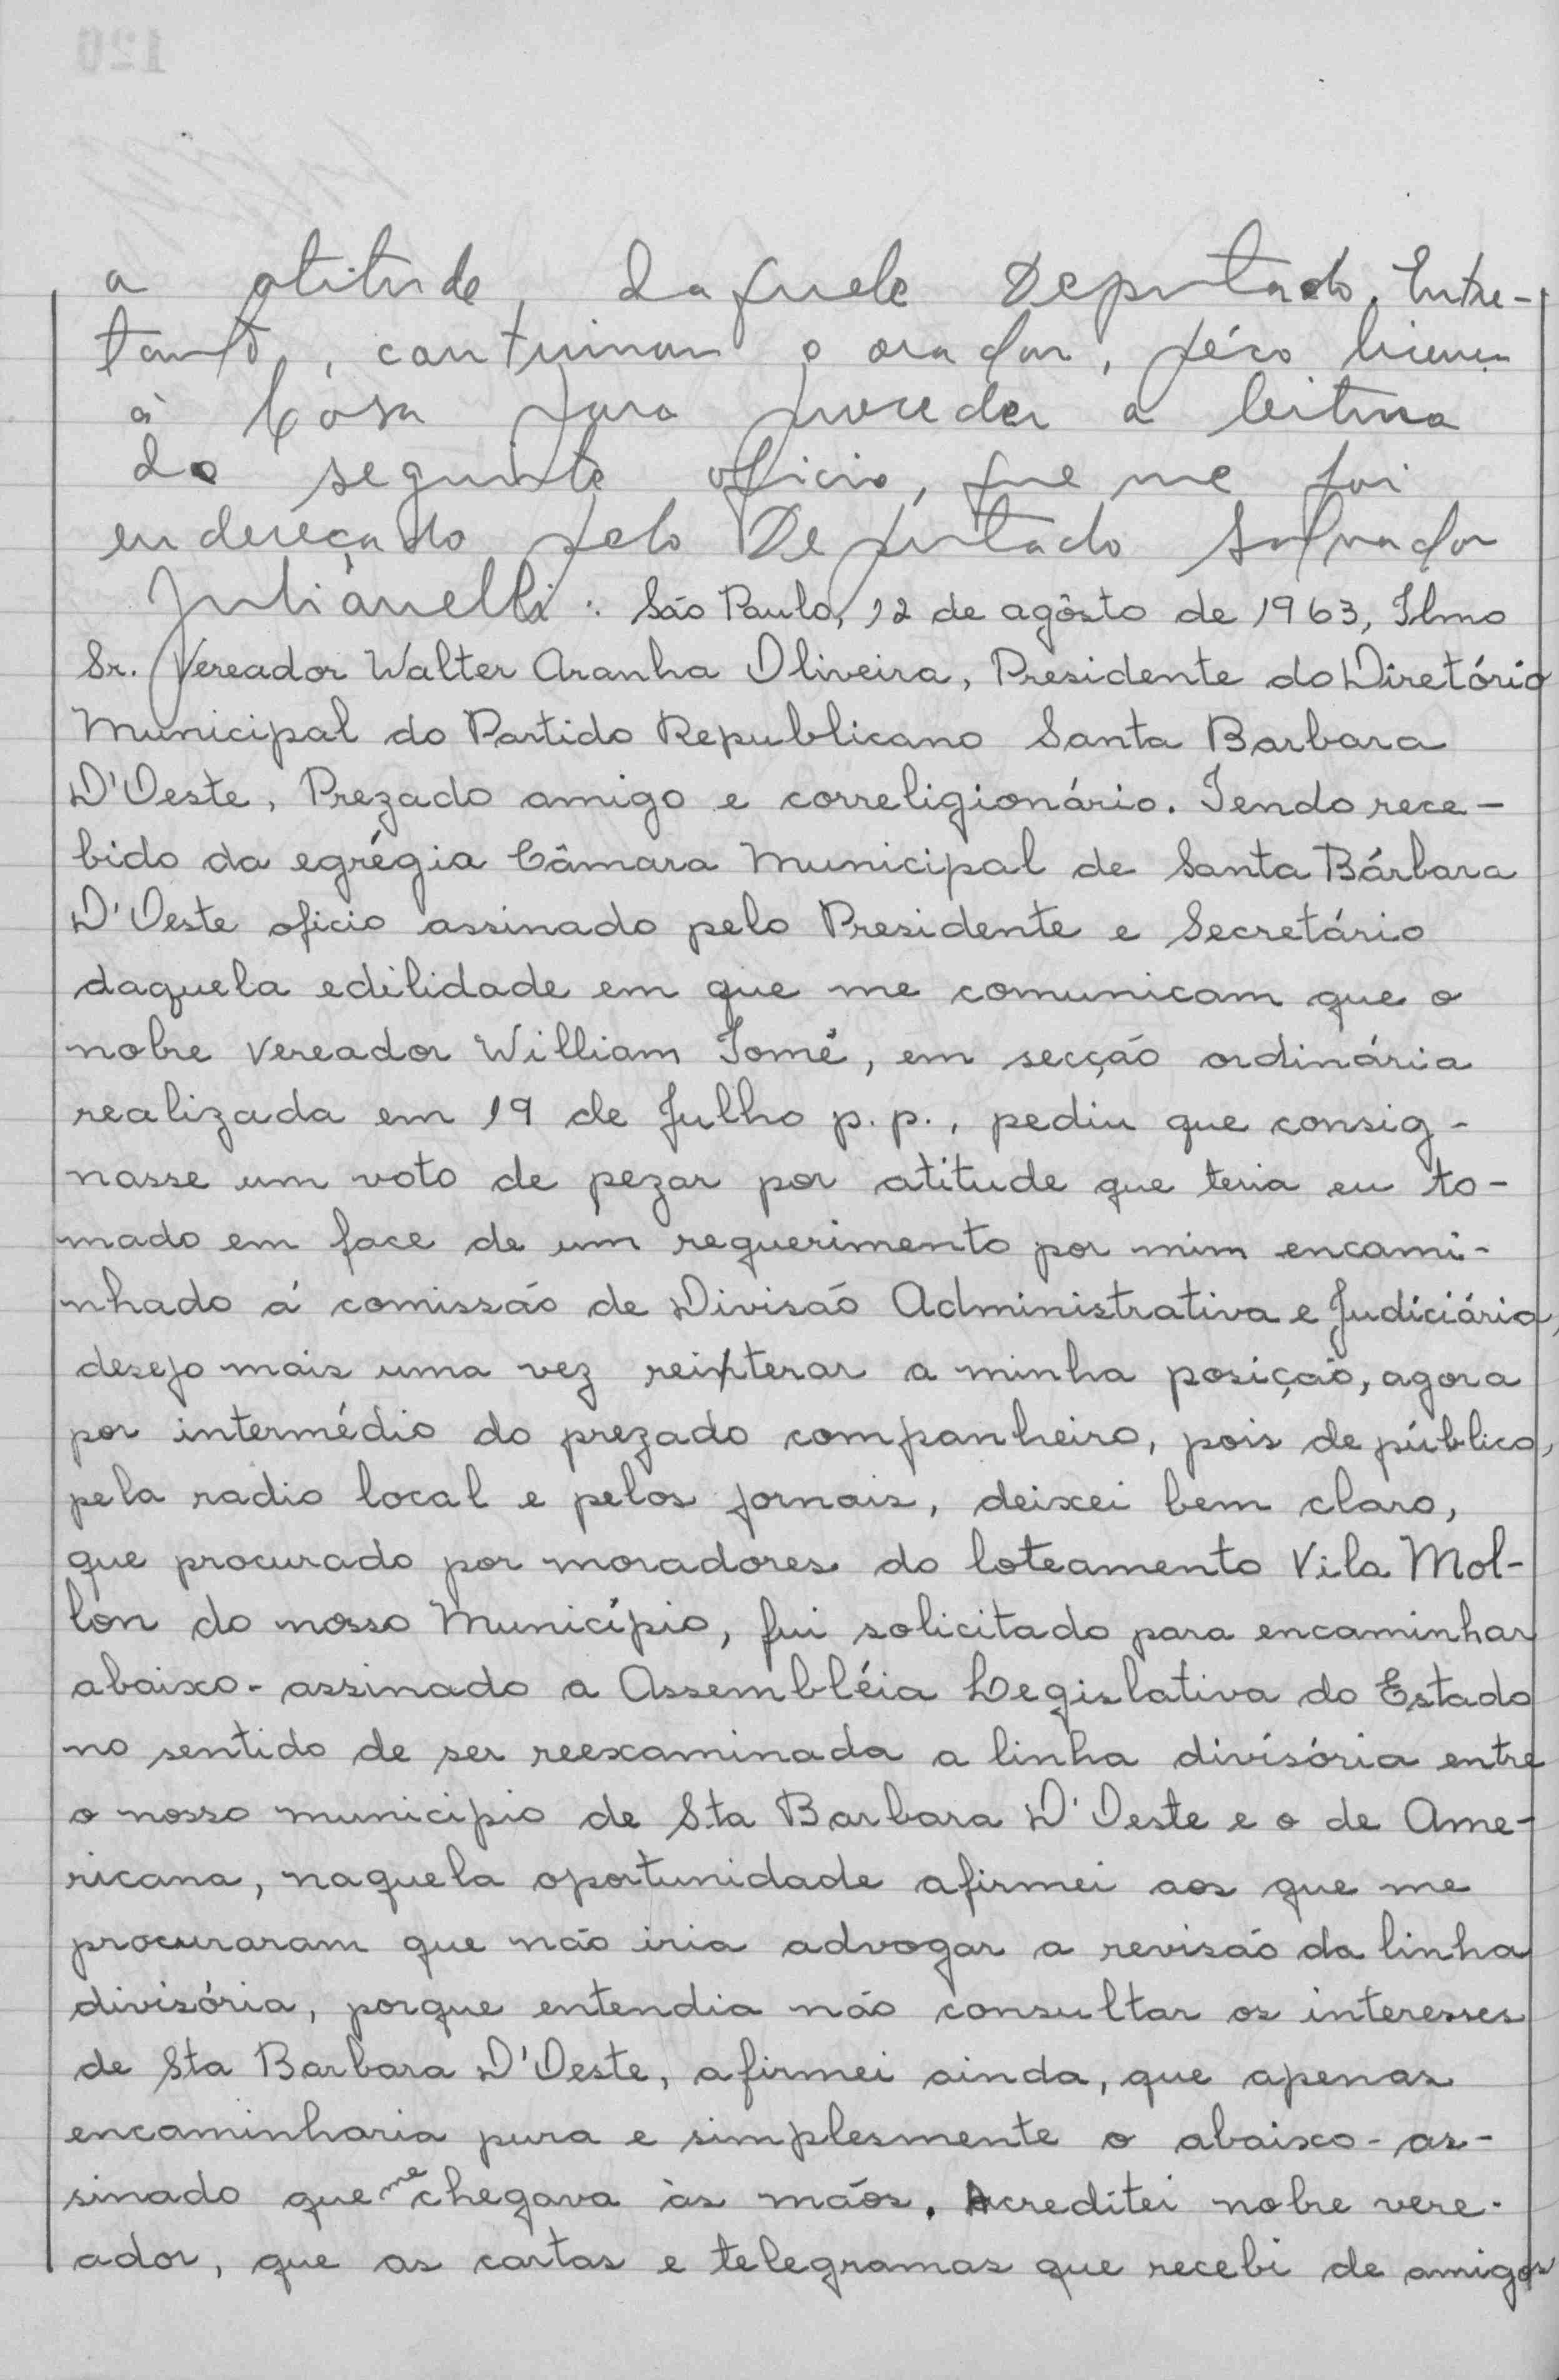 a atitude, daquele Deputado. Entre-
tanto, continuou o orador, péço licença
à Cása para proceder a leitura
do seguinte oficio, que me foi
endereçado pelo Deputado Salvador
Julianelli: São Paulo, 12 de agôsto de 1963, Ilmo
Sr. Vereador Walter Aranha Oliveira, Presidente do Diretório
Municipal do Partido Republicano Santa Barbara
D'Oeste, Prezado amigo e correligionário. Tendo rece-
bido da egrégia Câmara Municipal de Santa Bárbara
D'Oeste oficio assinado pelo Presidente e Secretário
daquela edilidade em que me comunicam que o
nobre vereador William Tomé, em secção ordinária
realizada em 19 de Julho p.p., pediu que consig-
nasse um voto de pezar por atitude que teria eu to-
mado em face de um requerimento por mim encami-
nhado á comissão de Divisão Administrativa e Judiciária,
desejo mais uma vez reiterar a minha posição, agora
por intermédio do prezado companheiro, pois de público,
pela radio local e pelos jornais, deixei bem claro,
que procurado por moradores do loteamento Vila Mol-
lon do nosso Município, fui solicitado para encaminhar
abaixo-assinado a Assembléia Legislativa do Estado
no sentido de ser reexaminada a linha divisória entre
o nosso municipio de Sta Barbara D'Oeste e o de Ame-
ricana, naquela oportunidade afirmei aos que me
procuraram que não iria advogar a revisão da linha
divisória, porque entendia não consultar os interesses
de Sta Barbara D'Oeste, afirmei ainda, que apenas
encaminharia pura e simplesmente o abaixo-as-
sinado que me chegava às mãos. Acreditei nobre vere-
ador, que as cartas e telegramas que recebi de amigos